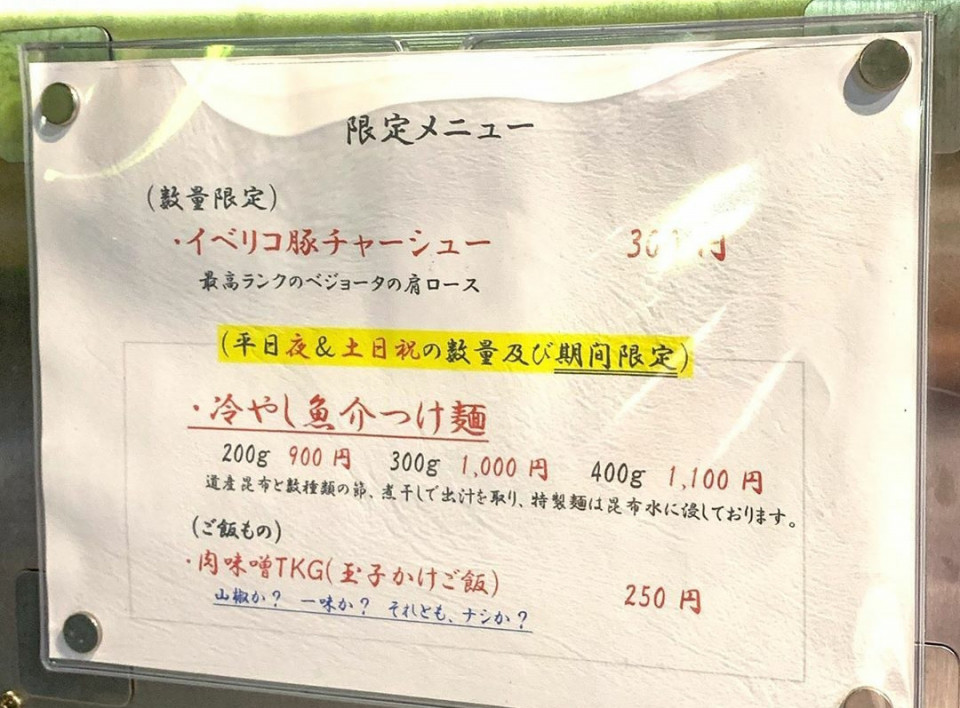 限定メニュー
(数量限定)
・イベリコ豚チャーシュー 円
最高ランクのベジョータの肩ロース
(平日夜&土日祝の数量及び期間限定)
・冷やし魚介つけ麺
200g 900円 300g 1,000円 400g 1,100円
道産昆布と数種類の節、煮干しで出汁を取り、特製麺は昆布水に浸しております。
(ご飯もの)
・肉味噌TKG(玉子かけご飯) 250円
山椒か? 一味か? それとも、ナシか?